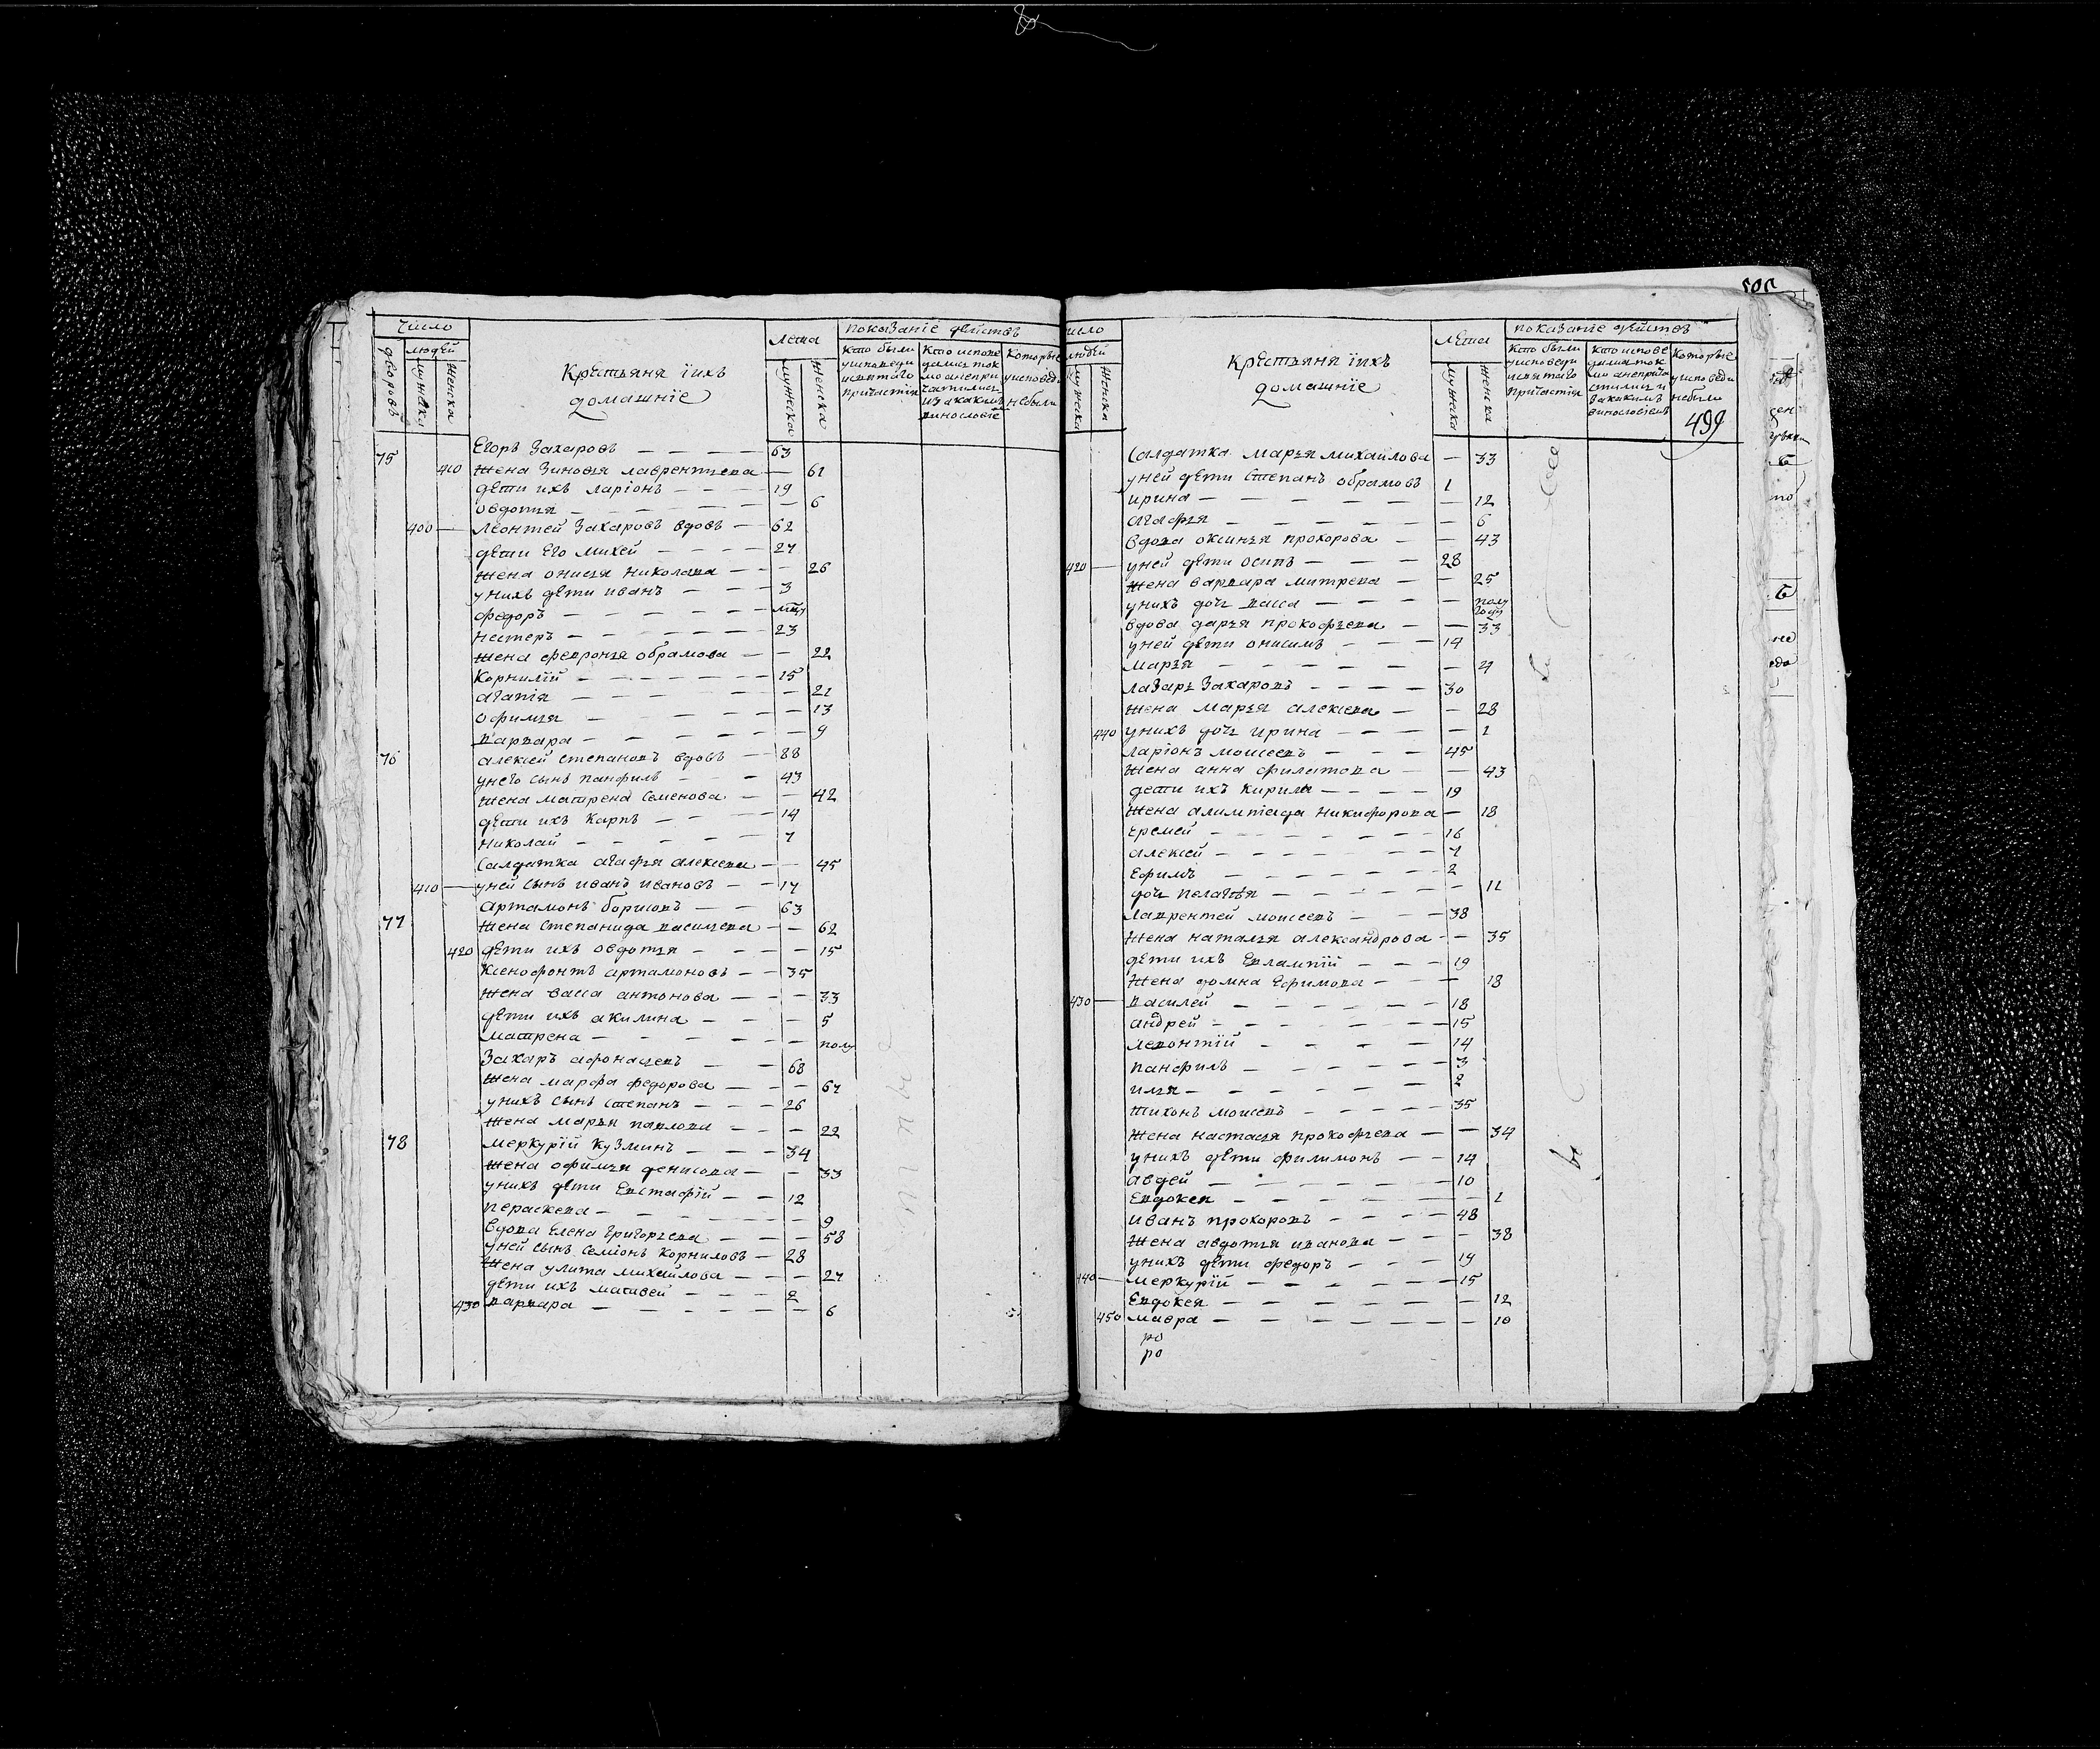 число
людей
дворовъ
мужска
женска
Крестьяня їихъ
домашнїе
лета
мужска
женска
показанїе действъ
кто были
уисповеди
исвятаго
причастия
кто испове
дались ток
мо анепри
частились
иза какимъ
винословїе
которые
уисповеди
небыли
75 Егоръ Захаровъ — — — — 63
410 жена Зиновья лаврентиева — 61
дети ихъ ларїонъ — — — 19
овдотья — — — — — 6
400 — леонтей Захаровъ вдовъ — 62
дети Его михей — — — — 27
жена онисья николава — — — 26
унихъ дети иванъ — — — 3
федоръ — — — — — —
нестеръ — — — — — — 23
жена февронья обрамова — — 22
Корнилїй — — — — — — 15
агапїя — — — — — — 21
офимья — — — — — — 13
варвара — — — — — — 9
76 алексей степановъ вдовъ — 88
унего сынъ панфилъ — — — 43
жена матрена Семенова — — 42
дети ихъ Карпъ — — — 14
николай — — — — — 7
Салдатка агафья алексева — — 45
410 — уней сынъ иванъ ивановъ — — 17
77 артамонъ борисовъ — — 63
жена степанида васильева — — 62
420 дети ихъ овдотья — — — — 15
Ксенофонтъ артамоновъ — — 35
жена васса антонова — — — 33
дети ихъ акилина — — — 5
матрена — — — — — — полу
Захаръ афонасьевъ — — — 68
жена марфа федорова — — — 67
унихъ сынъ степанъ — — — 26
жена марья павлова — — — 22
78 меркурїй кузминъ — — — 34
жена офимья денисова — — 33
унихъ дети Евстафїй — — 12
пераскева — — — — — — 9
вдова Елена григорьева — — — 58
уней сынъ Семїонъ корниловъ — 28
жена улита михайлова — — — 27
дети ихъ матвей — — — 2
430 варвара — — — — — — 6
число
людей
мужска
женска
крестьяня їихъ
домашнїе
лета
мужска
женска
показанїе действъ
кто были
уисповеди
исвятаго
причастия
кто испове
дались ток
мо анеприча
стились и
закакимъ
винословїемъ
которые
уисповеди
небыли
499
Салдатка марья михайлова — 33
уней дети степанъ обрамовъ 1
ирина — — — — — — 12
агафья — — — — — — 6
вдова оксинья прохорова — — 43
420 — уней дети осипъ — — — 28
жена варвара митрева — — 25
унихъ дочь васса — — — — полу
году
вдова дарья прокофьева — — 33
уней дети онисимъ — — — 14
марья — — — — — — 4
лазарь Захаровъ — — — — 30
жена марья алексева — — 28
440 унихъ дочь ирина — — — — 1
ларїонъ моисеевъ — — — 45
жена анна филатова — — 43
дети ихъ кирила — — — — 19
жена алимпїада никифорова — 18
еремей — — — — — — 16
алексей — — — — — — 7
Ефимъ — — — — — — 2
дочь пелагея — — — — — 11
лаврентей моисеевъ — — — 38
жена наталья александрова — — 35
дети ихъ Евлампїй — — — 19
жена домна Ефимова — — — 18
430 — василей — — — — — 18
андрей — — — — — — 15
левонтїй — — — — 14
панфилъ — — — — — 3
илья — — — — — — 2
тихонъ моисевъ — — — — 35
жена настасья прокофьева — — 34
унихъ дети филимонъ — — 14
авдей — — — — — 10
Евдокея — — — — — — 1
иванъ прохоровъ — — — — 48
жена авдотья иванова — — — 38
унихъ дети федоръ — — — 19
440 — меркурїй — — — — — 15
Евдокея — — — — — — 12
450 мавра — — — — — — — 10
ро
ро